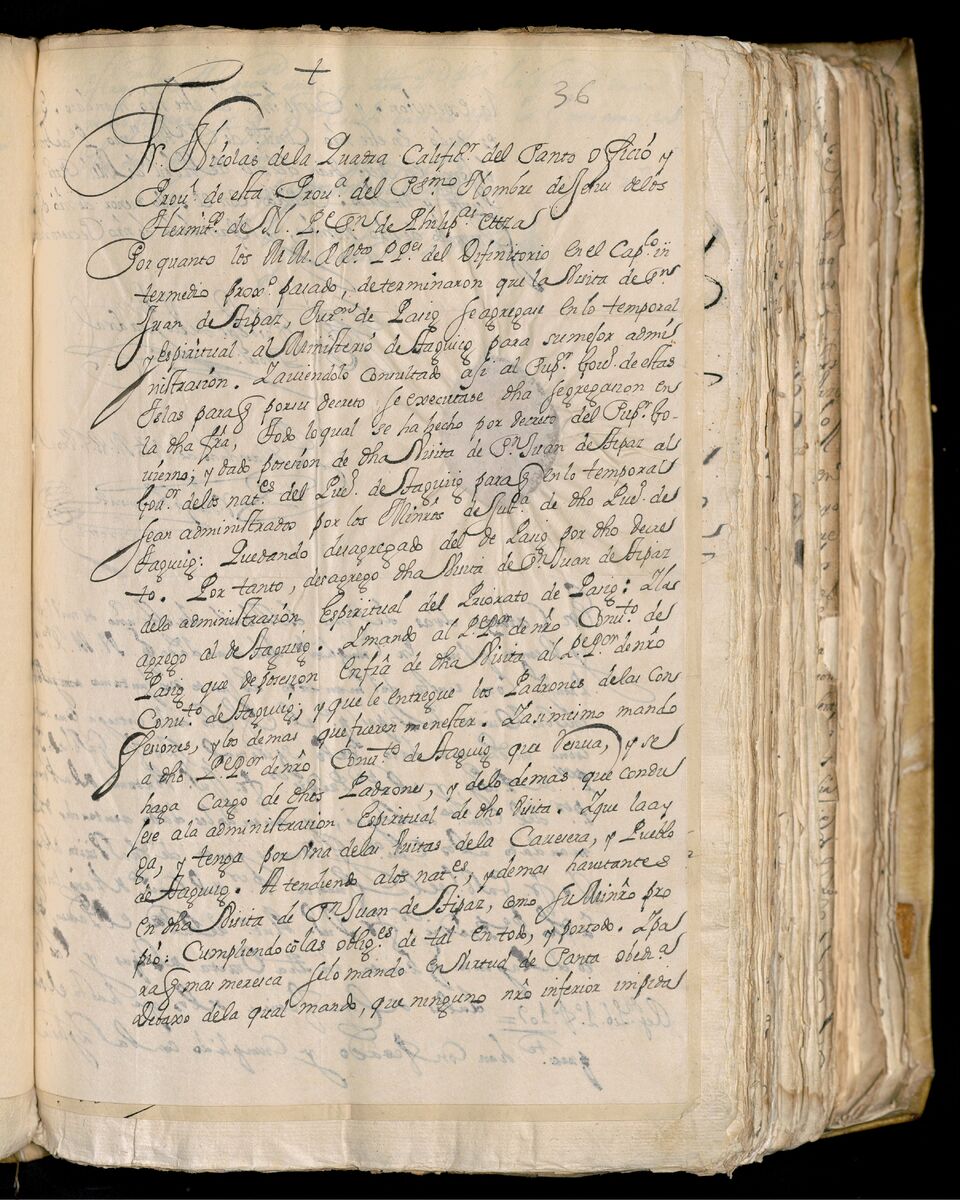 +
36
Fr. Nicolas de la Quadra Calific.r del Santo Officio y
Prou.l de esta Prou.a del SS.mo Nombre de Jesus de los
Hermit.s de N. P. S.n de Philip.as Ettza
Por quanto los MM. RR.dos PP.es del Difinitorio en el Cap.lo in
termedio prox.o pasado, determinaron que la Visita de S.n
Juan de Tipaz, Jur.on de Pasig se agregase en lo temporal
y espiritual al Ministerio de Taguig para su mejor admi
nistrasion. Y aviendolo Consultado assi al Sup.r Gov.no de estas
Islas para q por su decreto se executase dha segregacion en
la dha fra, todo lo qual se ha hecho por decreto del Sup.r Go-
uierno; y dado posesion de dha Visita de S.n Juan de Tipaz al
Gou.or de los nat.es del Pue.o de Taguiig para q en lo temporal
sean administrados por los Minros de Just.a de dho Pue.o de
Taguig: Quedando desagregado del de Pasig por dho decre
to. Por tanto, desagrego dha Visita de S.n Juan de Tipaz
de la administrasion Espiritual del Priorato de Pasig: Y las
agrego al de Taguig. Y mando al P.e P.or de nro Conu.to de
Pasig que de posesion en fra de dha Visita al P.e P.or de nro
Conu.to de Taguig; y que le entregue los Padrones de las Con
fesiones, y lo demas que fueren menester. Y asimismo mando
à dho P.e P.or de nro Conu.to de Taguig que reciua, y se
haga Cargo de dhos Padrones, y de lo demas que condu
sese a la administracion Espiritual de dha Visita. Y que la ay
ga, y tenga por Vna de las Visitas de la Cavesera, y Pueblo
de Taguig. Atendiendo a los nat.es, y demas hauitantes
en dha Visita de S.n Juan de Tipaz, como su Minro pro
pio: Cumpliendo cõ las oblig.es de tal en todo, y por todo. Y pa
ra q mas meresca se lo mando en Virtud de Santa obed.a
Debaxo de la qual mando, que ninguno nro inferior impida